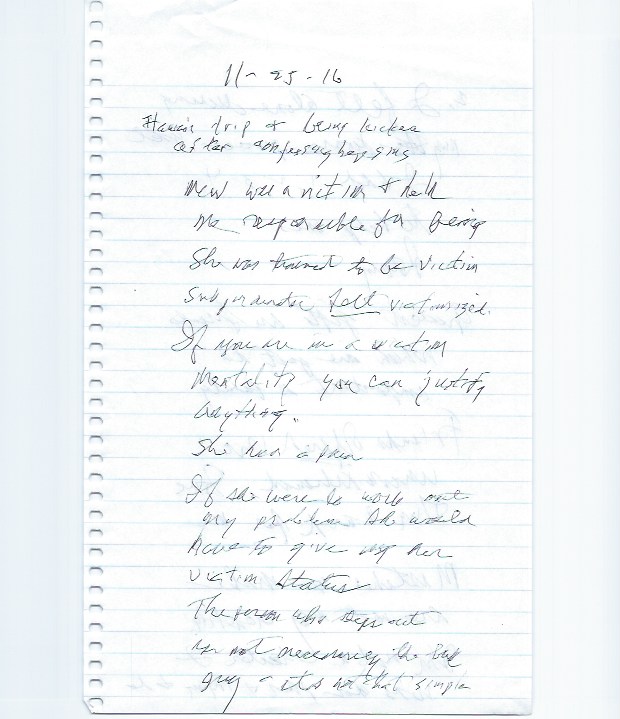 11-25-16
Hawaii trip & being kicked
after confessing her sins
was a victim & held
me responsible for being
She was trained to be victim
felt victimized.
If you are in a victim
mentality you can justify
anything.
She has a
If she were to work out
any problem she would
have to give up her
victim status
The person who steps out
is not necessarily the bad
guy - it's not that simple